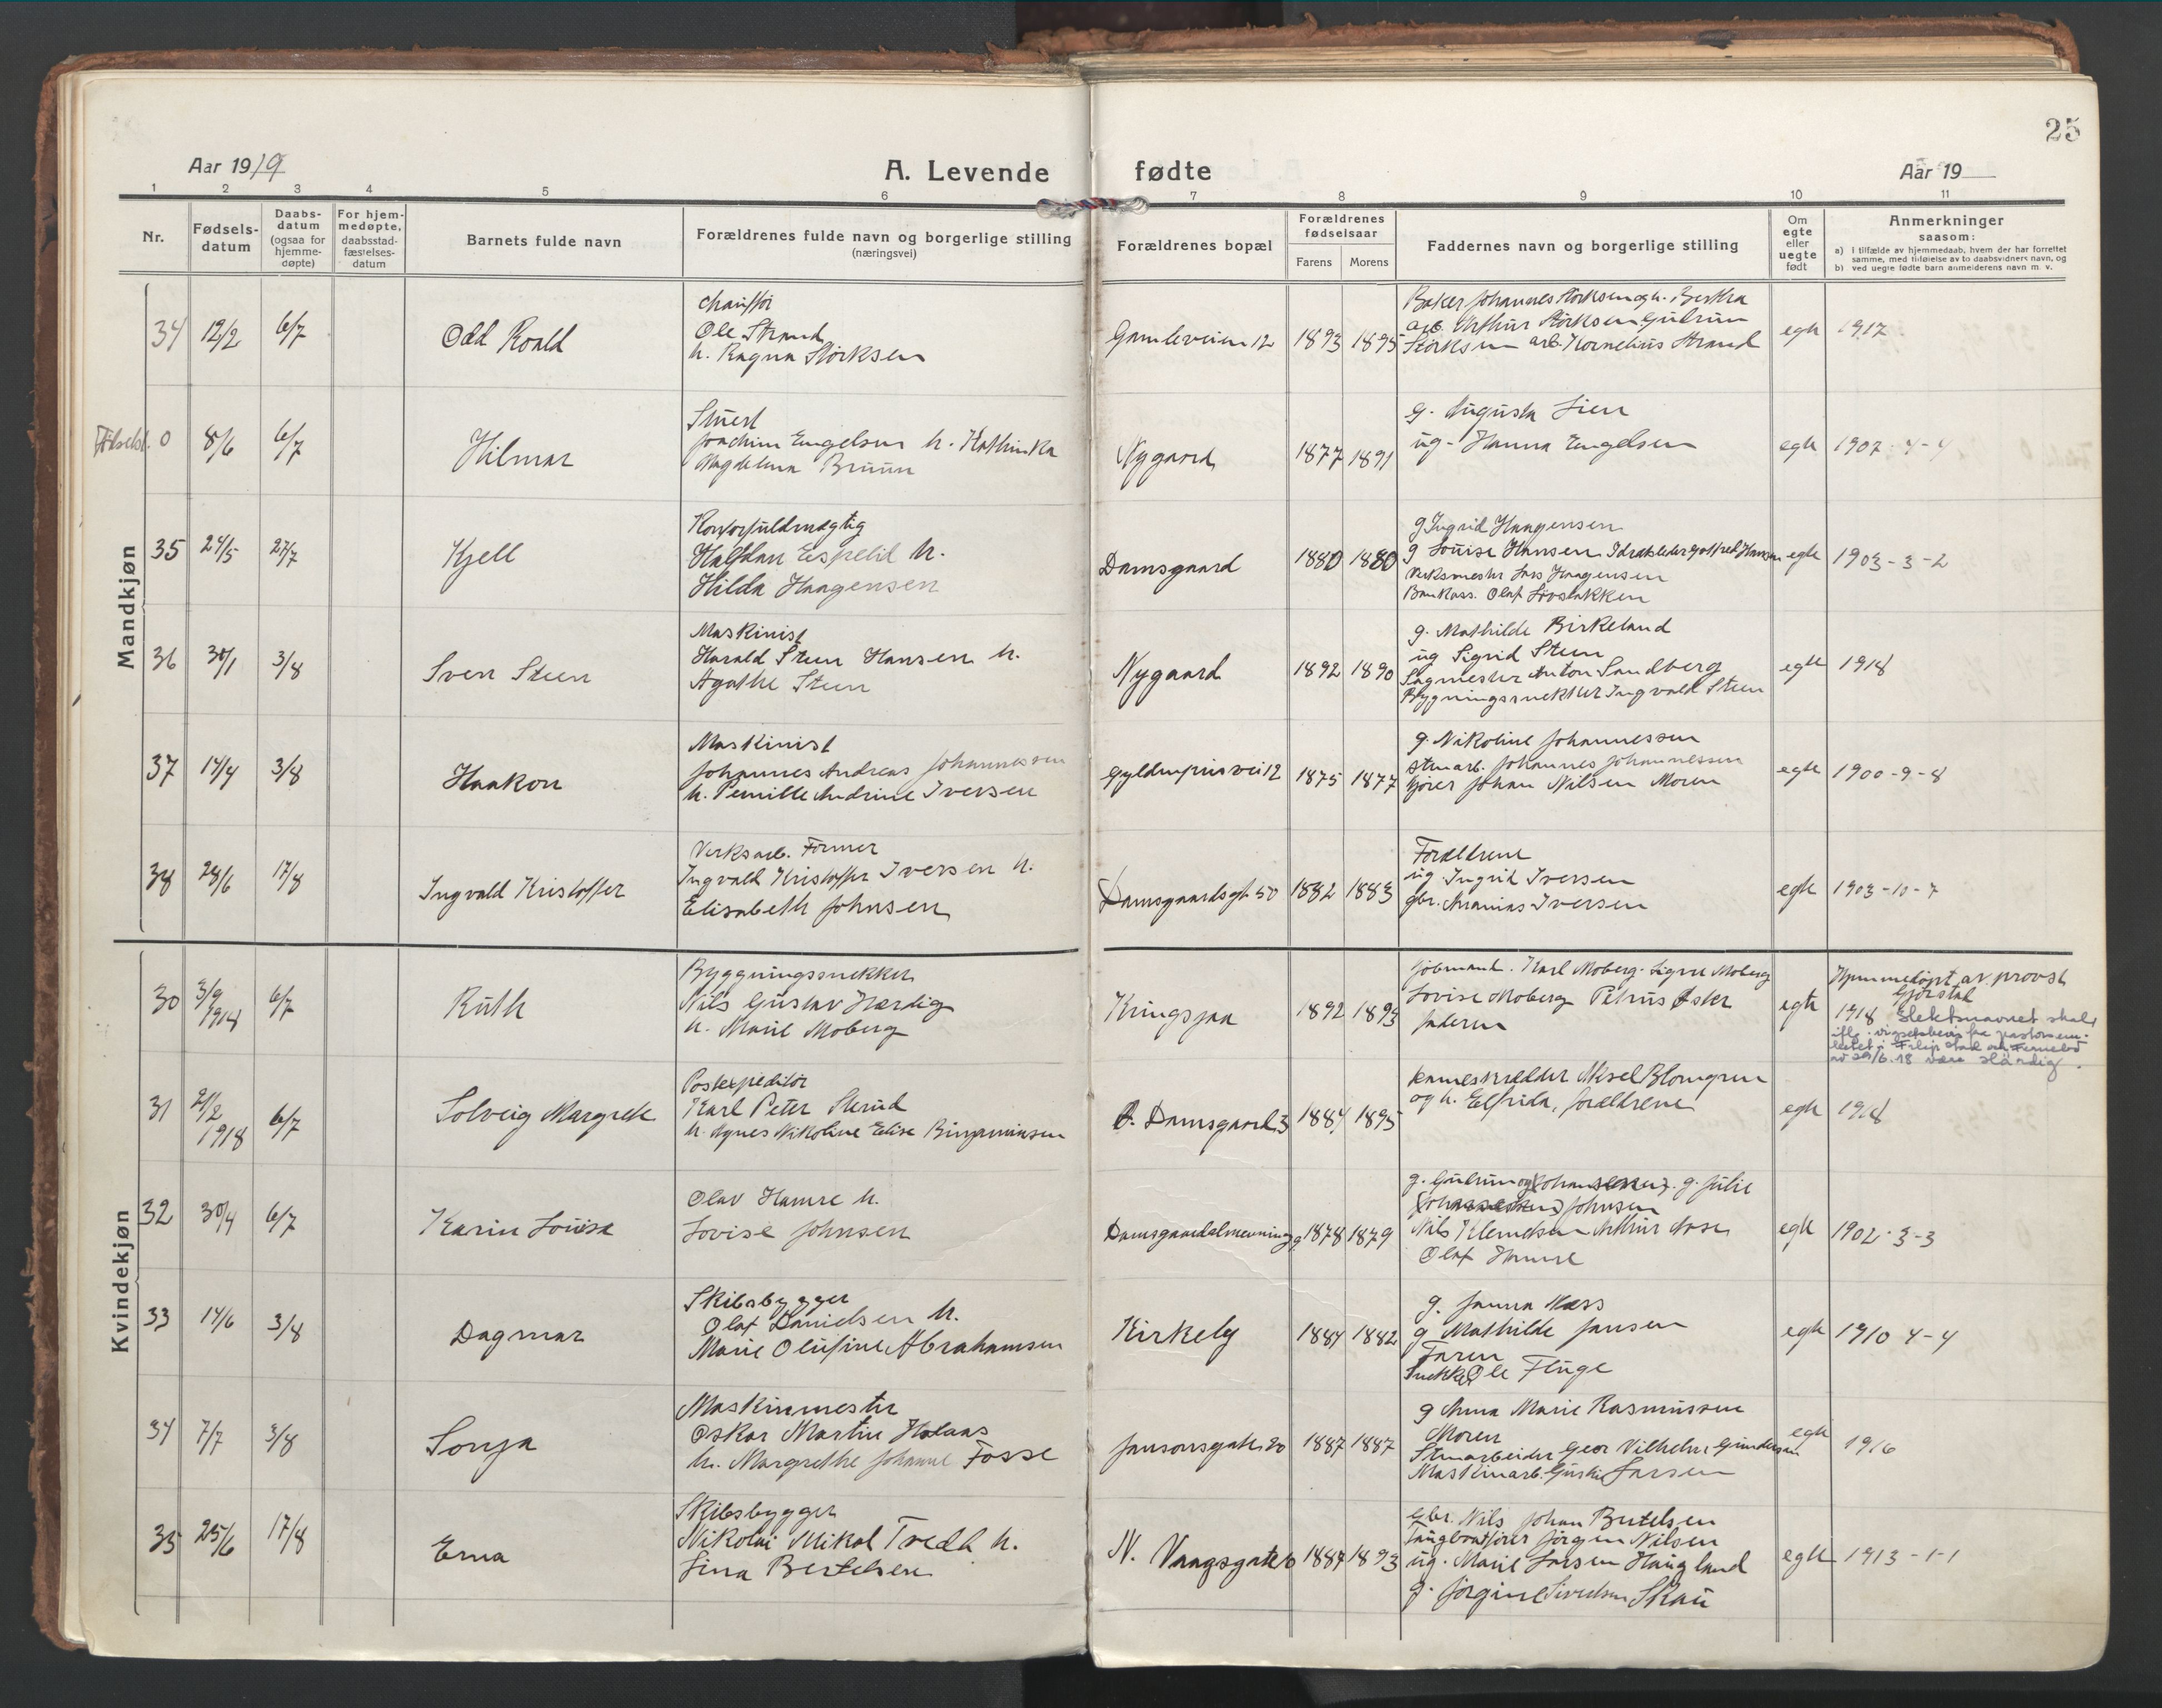 25
Aar 1919
A. Levende fødte
Aar 19
1 2 3 4 5 6 7 8 9 10 11
Nr.
Fødsels-
datum
Daabs-
datum
(ogsaa for
hjemme-
døpte)
For hjem-
medøpte,
daabsstad-
fæstelses-
datum
Barnets fulde navn
Forældrenes fulde navn og borgerlige stilling
(næringsvei)
Forældrenes bopæl
Forældrenes
fødselsaar
Farens Morens
Faddernes navn og borgerlige stilling
Om
egte
eller
uegte
født
Anmerkninger
saasom:
a) i tilfælde av hjemmedaab, hvem der har forrettet
samme, med tilføielse av to daabsvidners navn, og
b) ved uegte fødte barn anmelderens navn m. v.
Mandkjøn
34 12/2 6/7 Odd Roald
Chauffør
Ole Strand
h. Ragna Störksen
Gamleveien 12 1893 1895
Baker Johannes Störksen og h. Bertha
arb. Arthur Störksen Gudrun
Störksen arb. Kornelius Strand
egte 1917
0 8/6 6/7 Hilmar
Stuert
Joachim Engelsen h. Kathinka
Magdalena Bruun
Nygaard 1877 1891
g. Augusta Lien
ug. Hanna Engelsen
egte 1907-4-4
35 24/5 27/7 Kjell
Kontorfuldmægtig
Halfdan Espelid h.
Hilda Haagensen
Damsgaard 1880 1880
g Ingrid Haagensen
g Louise Hansen Idrætsleder Gotfred Hansen
Verksmester Lars Haagensen
Bankass. Olaf
egte 1903-3-2
36 30/1 3/8 Sven Steen
Maskinist
Harald Steen Hansen h.
Agathe Steen
Nygaard 1892 1890
g. Mathilde Birkeland
ug Sigrid Steen
Sagmester Anton Sandberg
Bygningssnekker Ingvald Steen
egte 1918
37 14/4 3/8 Haakon
Maskinist
Johannes Andreas Johannessen
h. Pernille Andrine Iversen
Gyldenprisvei 12 1875 1877
g. Nikoline Johannessen
stenarb. Johannes Johannessen
kjører Johan Nilsen Moren
egte 1900-9-8
38 28/6 17/8 Ingvald Kristoffer
Verksarb. Former
Ingvald Kristoffer Iversen h.
Elisabeth Johnsen
Damsgaardsgt 50 1882 1883
Forældrene
ug. Ingrid Iversen
gbr. Ananias Iversen
egte 1903-10-7
Kvindekjøn
30 3/9 1918 6/7 Ruth
Byggningssnekker
Nils Gustav Hærdig
h. Marie Moberg
Kringsjaa 1892 1893
Karl Moberg. Signe Moberg
Lovise Moberg Petrus
faderen
egte Hjemmedøpt av provst
Gjerstad
1918 Slektsnavnet skal
ifle. vigselsbevis fra pastorsem-
betet i Filipstad och Fernebo
av 29/6.18 være Härdig.
31 21/2 1918 6/7 Solveig Margrete
Postexpeditör
Karl Peter Sterud
h. Agnes Nikoline Elise Binjaminsen
Ø. Damsgaard 3 1884 1895
Dameskrædder Aksel Blomgren
og h. Elfrida, forældrene
egte 1918
32 30/4 6/7 Karin Louise
Olav Hamre h.
Lovise Johnsen
Damsgaardalmenning 9 1878 1879
g. Gudrun og g. Julie
Johnsen
Nils Klemetsen Arthur Aase
Olaf Hamre
egte 1902-3-3
33 14/6 3/8 Dagmar
Skibsbygger
Olaf Danielsen h.
Marie Olufine Abrahamsen
Kirkely 1884 1882
g. Janna Næss
g Mathilde Jansen
Faren
Snekker Ole Fluge
egte 1910 4-4
34 7/7 3/8 Sonja
Maskinmester
Oskar Martin Holaas
h. Margrethe Johanne Fosse
Jansonsgate 20 1887 1887
g Anna Marie Rasmussen
Moren
Stenarbeider Georg Vilhelm Gundersen
Maskinarb. Larsen
egte 1916
35 25/6 17/8 Erna
Skibsbygger
Nikolai Mikal Tvedt h.
Lina Bertelsen
N. Vaagsgate 10 1887 1893
Gbr. Nils Johan Bertelsen
Taugbaatfører Jørgen Nilsen
ug. Marie Larsen Haugland
g. Jørgine Sivertsen Skau
egte 1913-1-1